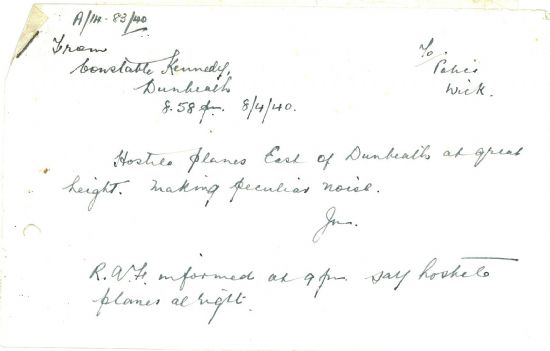 A/14-83/40
From
Constable Kennedy,
Dunbeath
8.58 pm. 8/4/40.
To
Police
Wick.
Hostile planes East of Dunbeath at great
height. Making peculiar noise.
R.A.F. informed at 9 pm say hostile
planes alright.